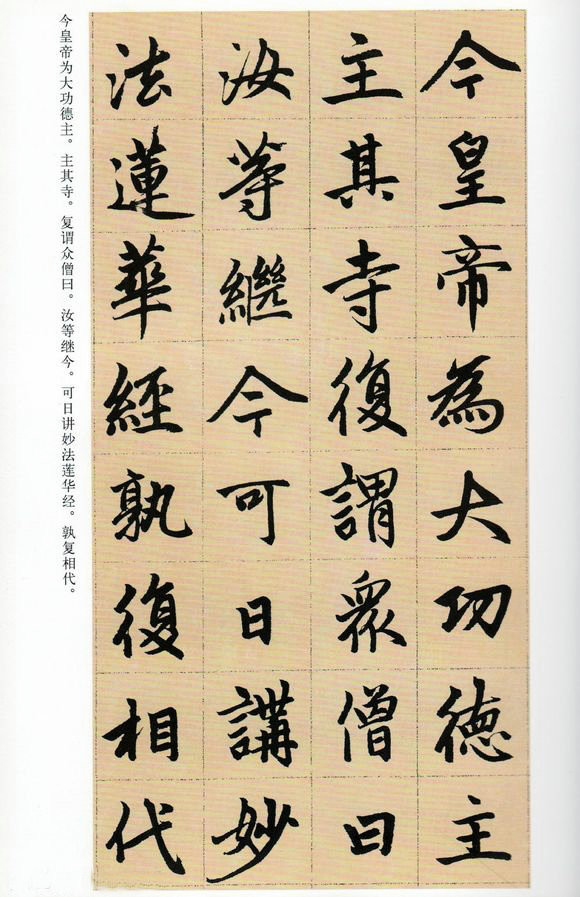 今皇帝為大功德主
主其寺復謂眾僧曰
汝等繼今可日講妙
法蓮華經孰復相代
今皇帝为大功德主。主其寺。复谓众僧曰。汝等继今。可日讲妙法莲华经。孰复相代。